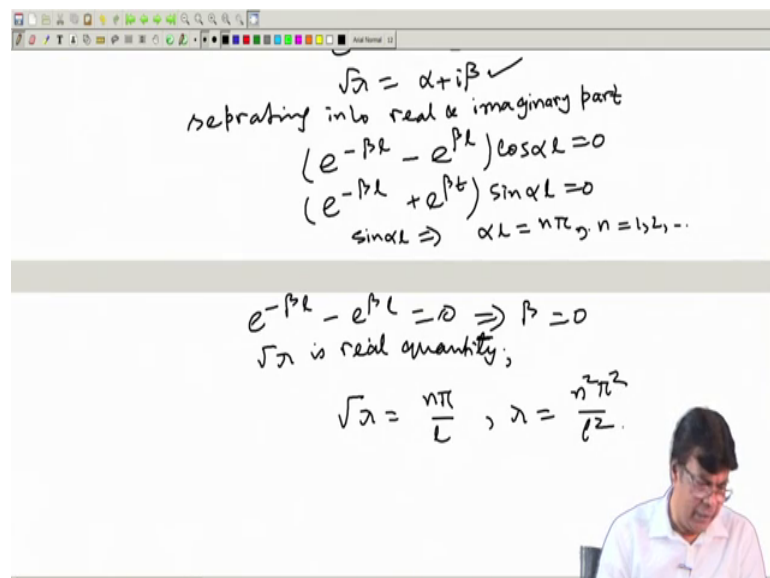 Arial Normal 12
√λ = α+iβ ✓
seprating into real & imaginary part
(e^{-βl} - e^{βl}) cosαl = 0
(e^{-βl} + e^{βt}) sinαl = 0
sinαl ⇒ αl = nπ, n = 1, 2, --
e^{-βl} - e^{βl} = 0 ⇒ β = 0
√λ is real quantity;
√λ = nπ/l , λ = n²π²/l² .